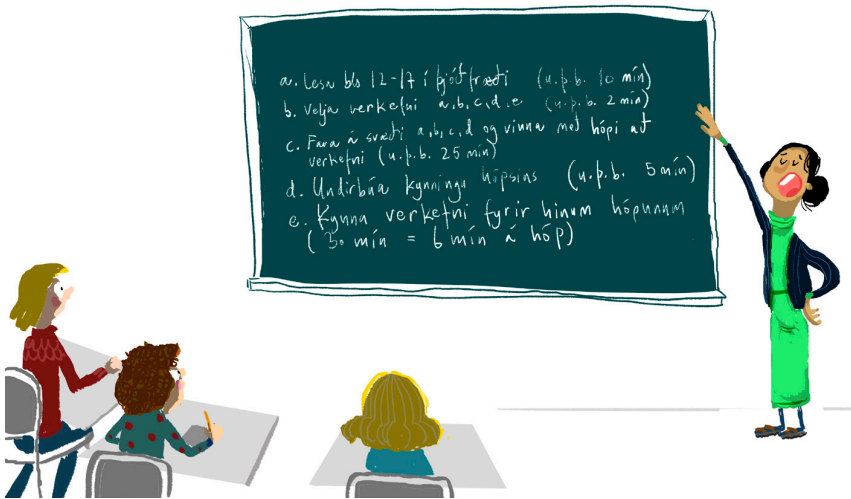 a. Lesa bls 12-17 í þjóðfræði (u.þ.b. 10 mín)
b. Velja verkefni a,b,c,d,e (u.þ.b. 2 mín)
c. Fara á svæði a,b,c,d og vinna með hópi að
verkefni (u.þ.b. 25 mín)
d. Undirbúa kynningu hópsins (u.þ.b. 5 mín)
e. Kynna verkefni fyrir hinum hópunum
(30 mín = 6 mín á hóp)